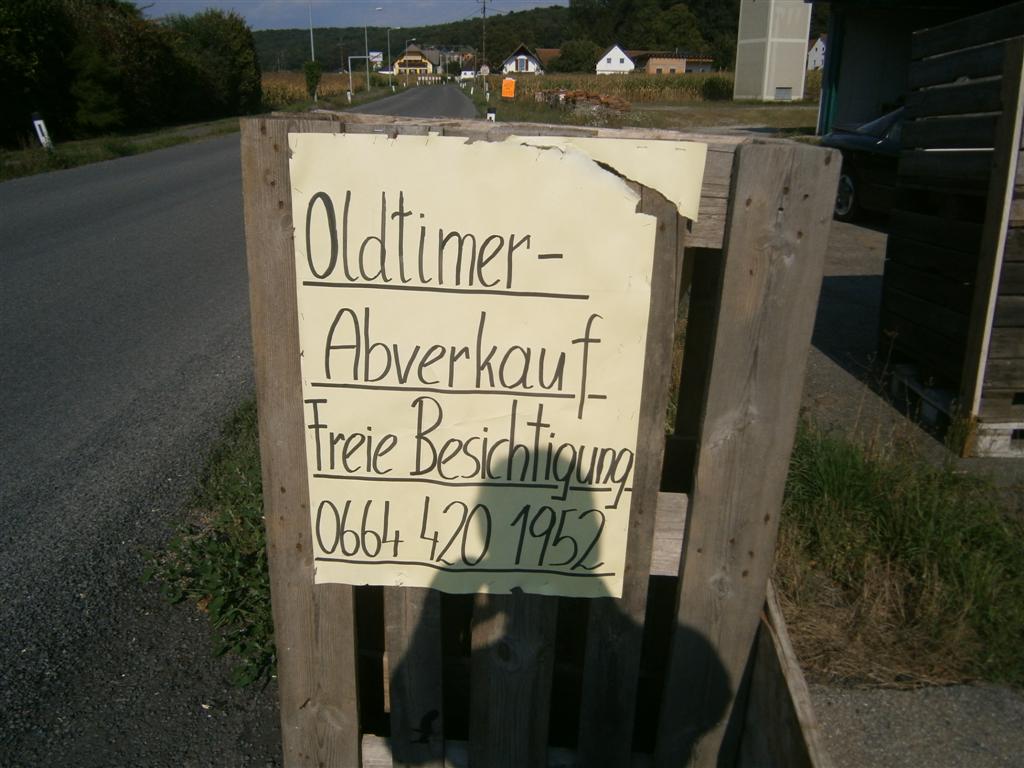 Oldtimer-
Abverkauf
Freie Besichtigung
0664 420 1952